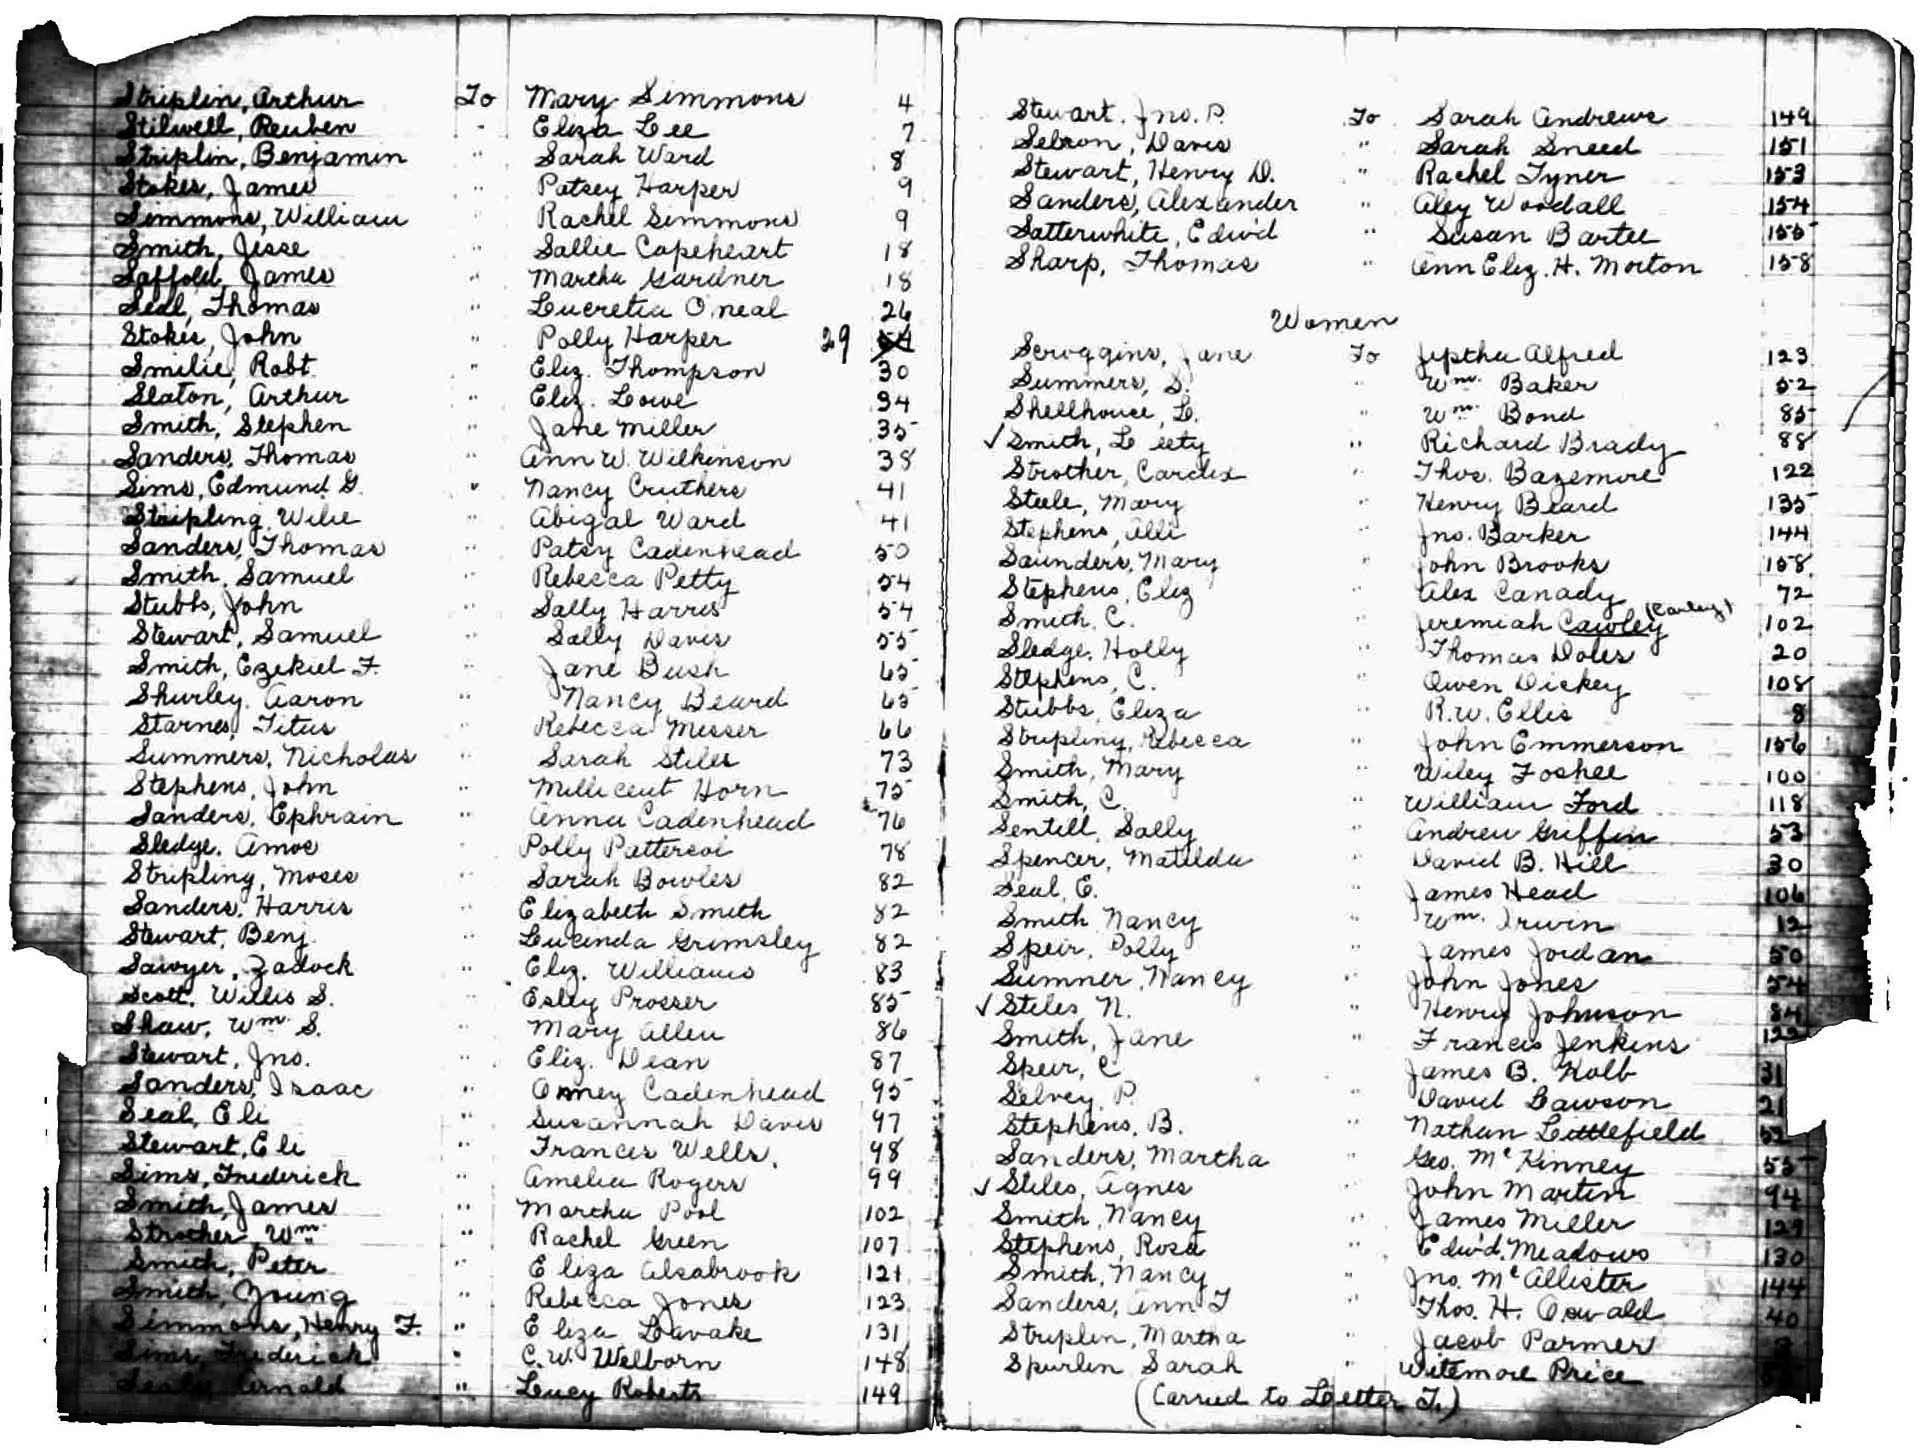 Striplin, Arthur To Mary Simmons 4
Stilwell, Reuben " Eliza Lee 7
Striplin, Benjamin " Sarah Ward 8
Stokes, James " Patsey Harper 9
Simmons, William " Rachel Simmons 9
Smith, Jesse " Sallie Capeheart 18
Saffold, James " Martha Gardner 18
Seal, Thomas " Lucretia O'neal 26
Stokes, John " Polly Harper 29
Smilie, Robt. " Eliz. Thompson 30
Slaton, Arthur " Eliz. Lowe 34
Smith, Stephen " Jane Miller 35
Sanders, Thomas " Ann W. Wilkinson 38
Sims, Edmund G. " Nancy Cruthers 41
Stripling, Wilie " Abigal Ward 41
Sanders, Thomas " Patsy Cadenhead 50
Smith, Samuel " Rebecca Petty 54
Stubbs, John " Sally Harris 54
Stewart, Samuel " Sally Davis 55
Smith, Ezekiel F. " Jane Bush 65
Shurley, Aaron " Nancy Beard 65
Starnes, Titus " Rebecca Messer 66
Summers, Nicholas " Sarah Stiles 73
Stephens, John " Millicent Horn 75
Sanders, Ephrain " Anna Cadenhead 76
Sledge, Amos " Polly Patterson 78
Stripling, Moses " Sarah Bowles 82
Sanders, Harris " Elizabeth Smith 82
Stewart, Benj. " Lucinda Grimsley 82
Sawyer, Zadock " Eliz. Williams 83
Scott, Willis S. " Esley Prosser 85
Shaw, Wm. S. " Mary Allen 86
Stewart, Jno. " Eliz. Dean 87
Sanders, Isaac " Omey Cadenhead 95
Seal, Eli " Susannah Davis 97
Stewart, Eli " Frances Wells. 98
Sims, Frederick " Amelia Rogers 99
Smith, James " Martha Pool 102
Strother, Wm. " Rachel Green 107
Smith, Peter " Eliza Alsabrook 121
Smith, Young " Rebecca Jones 123
Simmons, Henry F. " Eliza Lavake 131
Sims, Frederick " C. W. Welborn 148
Arnald " Lucy Roberts 149
Stewart, Jno. P. To Sarah Andrews 149
Sebron, Davis " Sarah Sneed 151
Stewart, Henry D. " Rachel Tyner 153
Sanders, Alexander " Aley Woodall 154
Satterwhite, Edw'd " Susan Bartee 155
Sharp, Thomas " Ann Eliz. H. Morton 158
Women
Scroggins, Jane To Jeptha Alfred 123
Summers, S. " Wm. Baker 52
Shellhouse, L. " Wm. Bond 85
✓ Smith, L eety " Richard Brady 88
Strother, Cardix " Thos. Bazemore 122
Steele, Mary " Henry Beard 135
Stephens, Alli " Jno. Barker 144
Saunders, Mary " John Brooks 158
Stephens, Eliz " Alex Canady 72
Smith, C. " Jeremiah Cawley 102
Sledge, Holly " Thomas Doles 20
Stephens, C. " Owen Dickey 108
Stubbs, Eliza " R. W. Ellis 8
Stripling, Rebecca " John Emmerson 156
Smith, Mary " Wiley Foshee 100
Smith, C. " William Ford 118
Sentell, Sally " Andrew Griffin 53
Spencer, Matilda " David B. Hill 30
Seal, E. " James Head 106
Smith Nancy " Wm. Irwin 12
Speir, Polly " James Jordan 50
Sumner, Nancy " John Jones 54
✓ Stiles, N. " Henry Johnson 84
Smith, Jane " Francis Jenkins 122
Speir, C " James B. Kolb 31
Selvey, P. " David Lawson 21
Stephens, B. " Nathan Littlefield 52
Sanders, Martha " Geo. McKinney 55
✓ Stiles, Agnes " John Martin 94
Smith, Nancy " James Miller 129
Stephens, Rosa " Edw'd. Meadows 130
Smith, Nancy " Jno. McAllister 144
Sanders, Ann T " Thos. H. Oswald 40
Striplin, Martha " Jacob Parmer
Spurlin, Sarah " Witemore Price
(Carried to Letter T.)